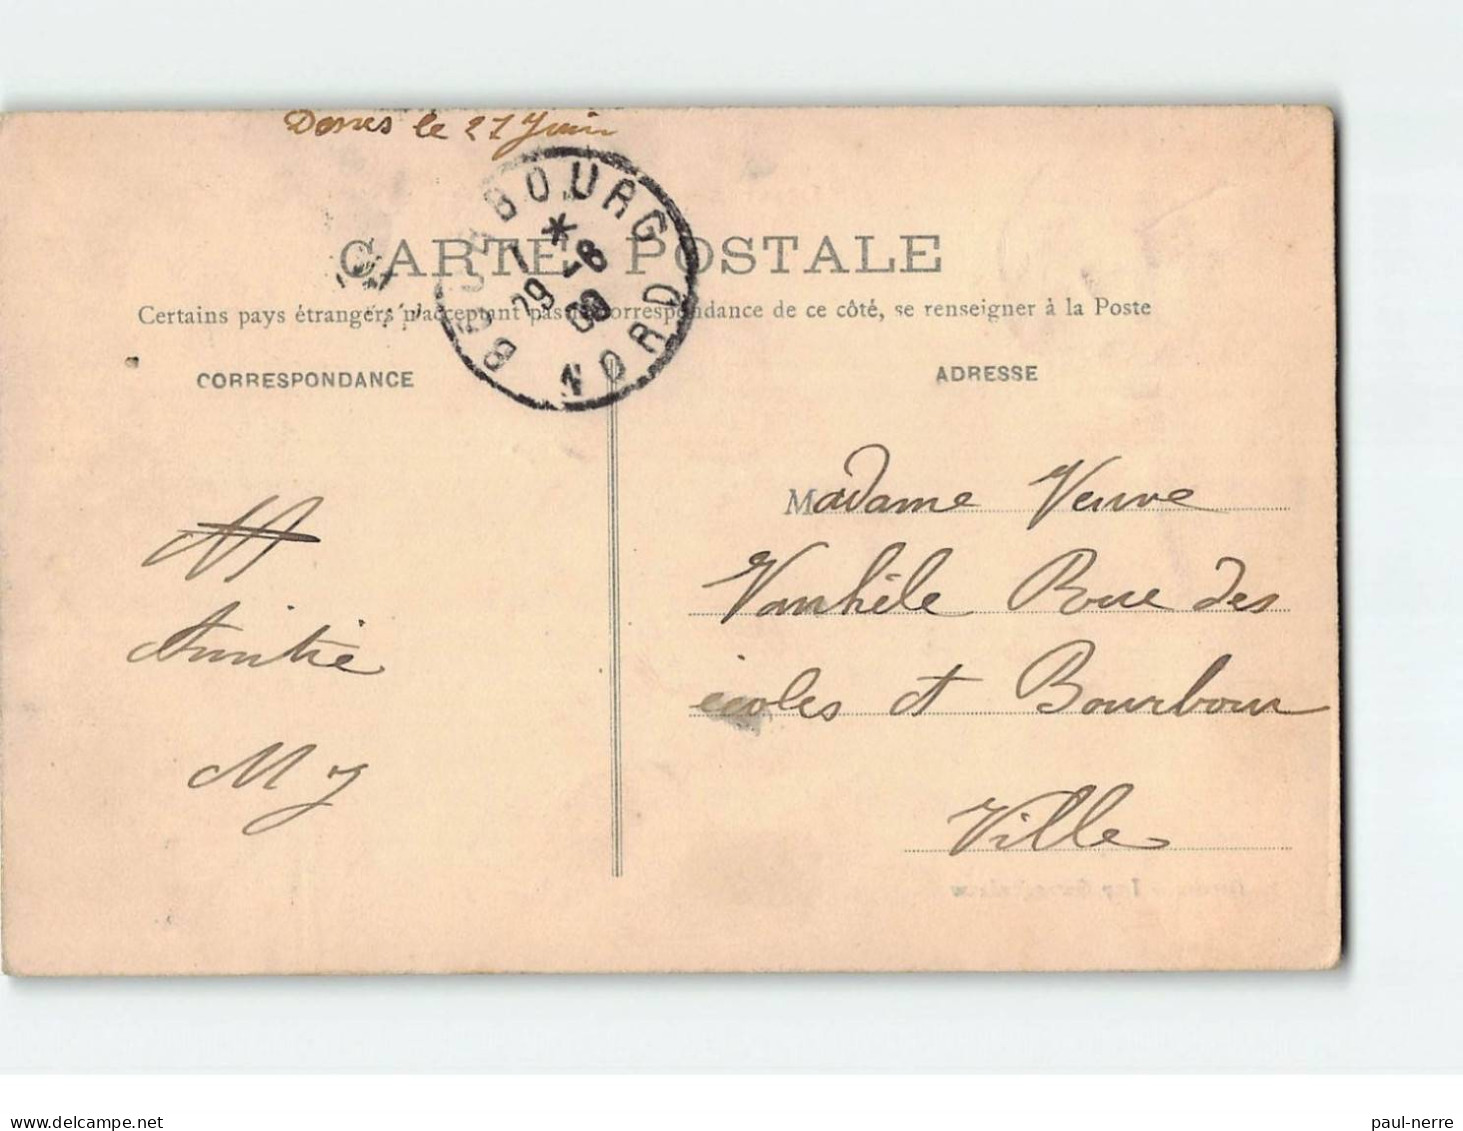 le 27 Juin
BOURBOURG
* 
29 -8
09
NORD
CARTE POSTALE
Certains pays étrangers n'acceptant pas de correspondance de ce côté, se renseigner à la Poste
CORRESPONDANCE
ADRESSE
Madame Veuve
Vanhèle Rue des
écoles et Bourbour
Ville
Amitié
M J
paul-nerre